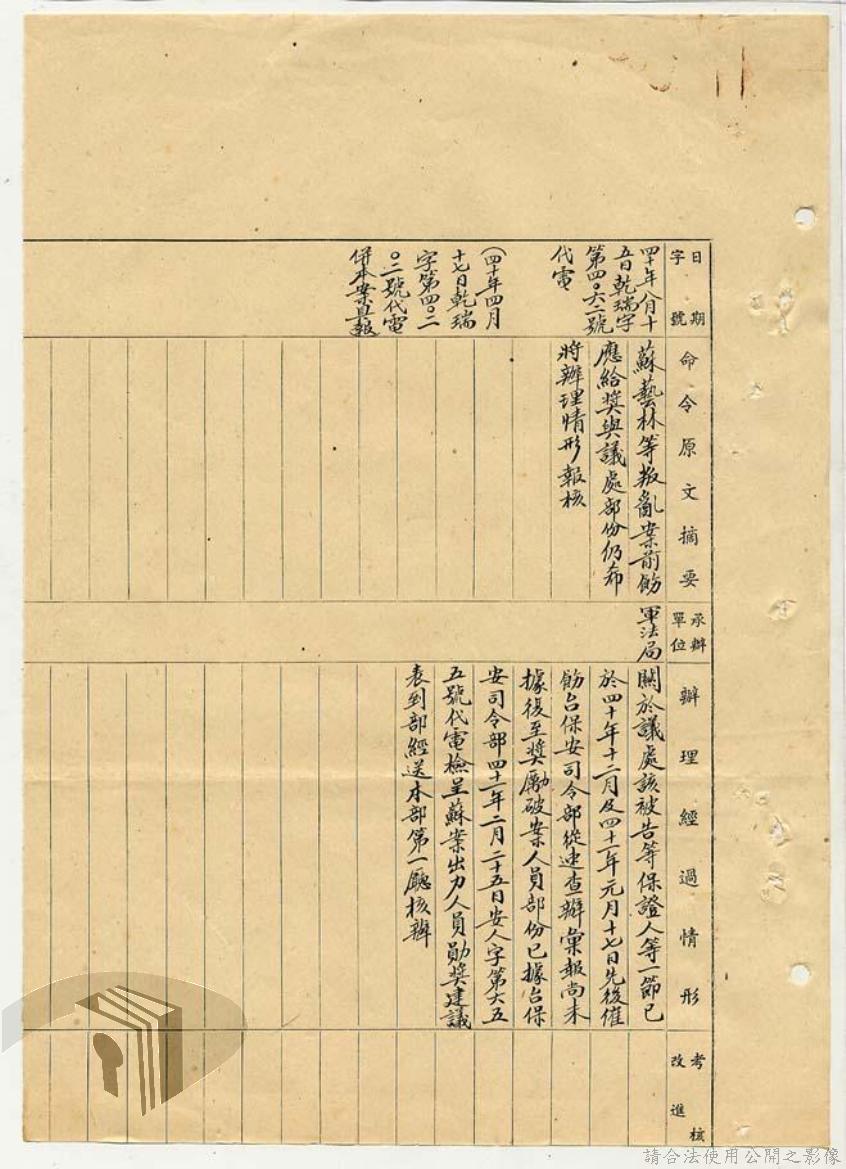 日期
字號
四十年八月十
五日乾瑞字
第四〇六二號
代電
(四十年四月
十七日乾瑞
字第四〇二
〇二號代電
併本案具報
命令原文摘要
蘇藝林等叛亂案前飭
應給獎與議處部份仍希
將辦理情形報核
承辦
單位
軍法局
辦理經過情形
關於議處該被告等保證人等一節已
於四十年十二月及四十一年元月十七日先後催
飭台保安司令部從速查辦彙報尚未
據復至獎勵破案人員部份已據台保
安司令部四十一年二月二十五日安人字第六五
五號代電檢呈蘇案出力人員勛獎建議
表到部經送本部第一廳核辦
考核
改進
請合法使用公開之影像